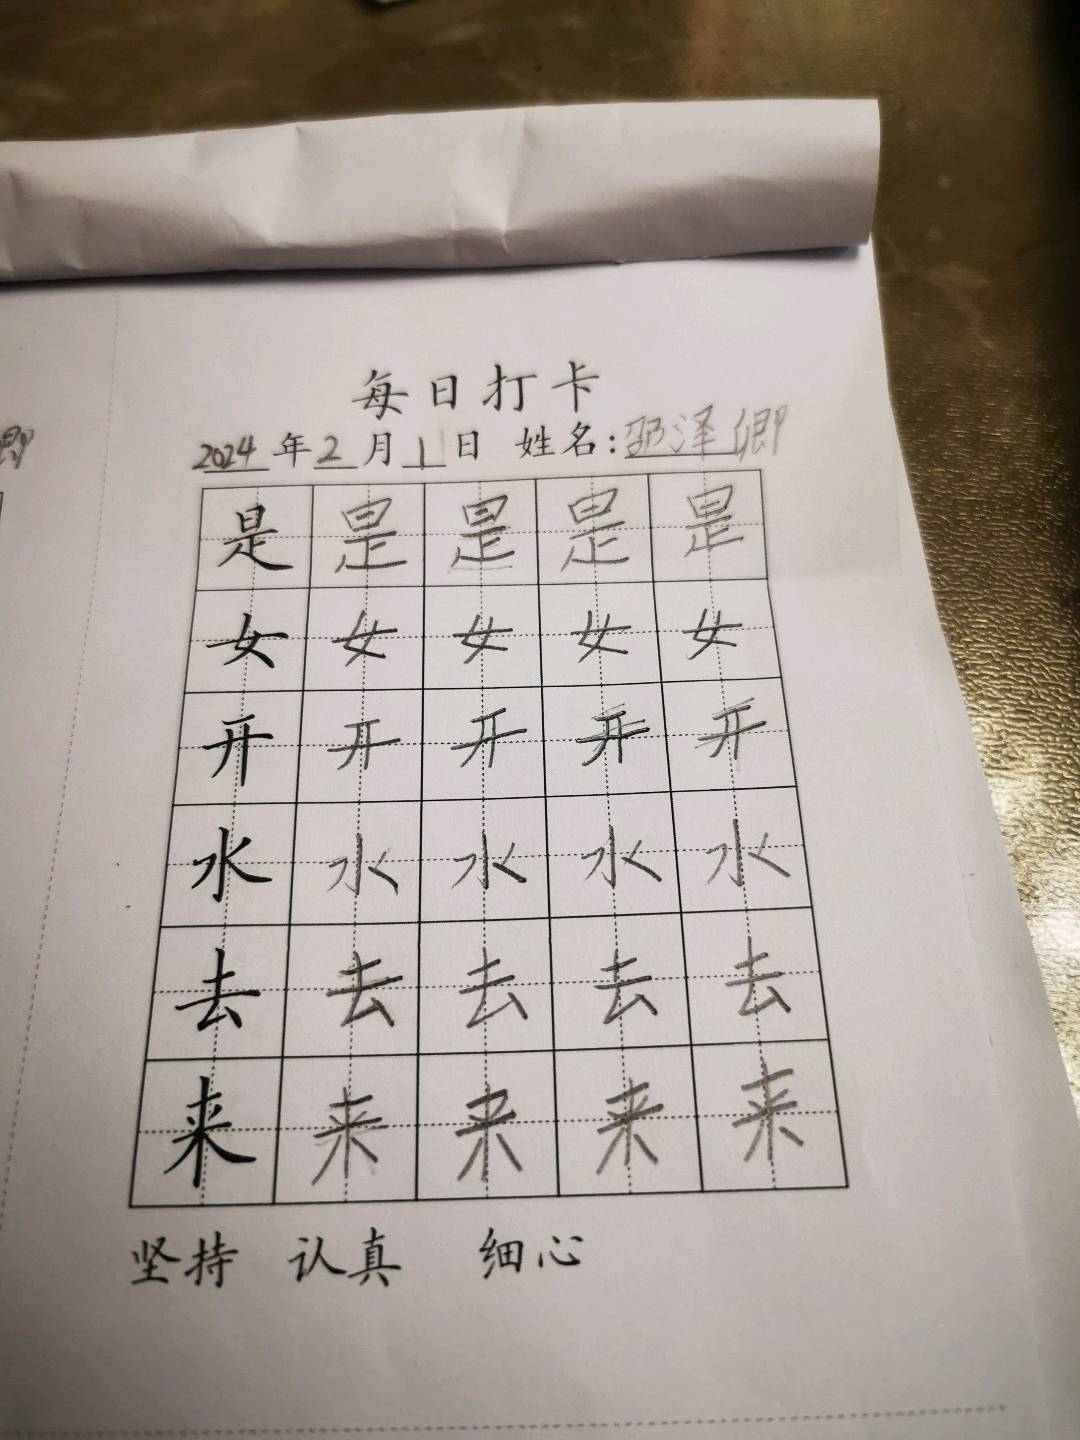 每日打卡
2024年2月1日 姓名:邵泽卿
是是是是是
女女女女女
开开开开开
水水水水水
去去去去去
来来来来来
坚持 认真 细心
卿